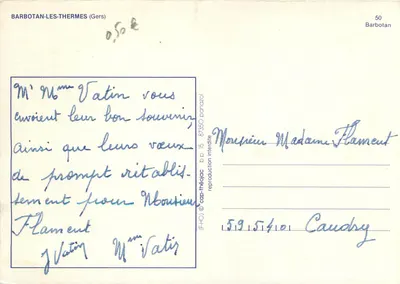 BARBOTAN-LES-THERMES (Gers)
50
Barbotan
0,50€
Mr Mme Vatin vous
envoient leur bon souvenir,
ainsi que leurs vœux
de prompt rétablis-
sement pour Monsieur
Flament
J Vatin Mme Vatin
cap-théojac b.p. 15 87350 panazol
reproduction interdite
Monsieur Madame Flament
59540 Caudry